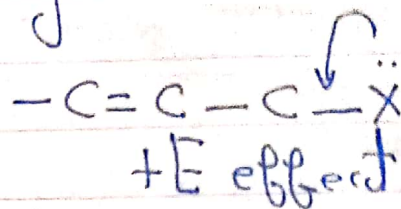 -C=C-C-Ẍ
+E effect